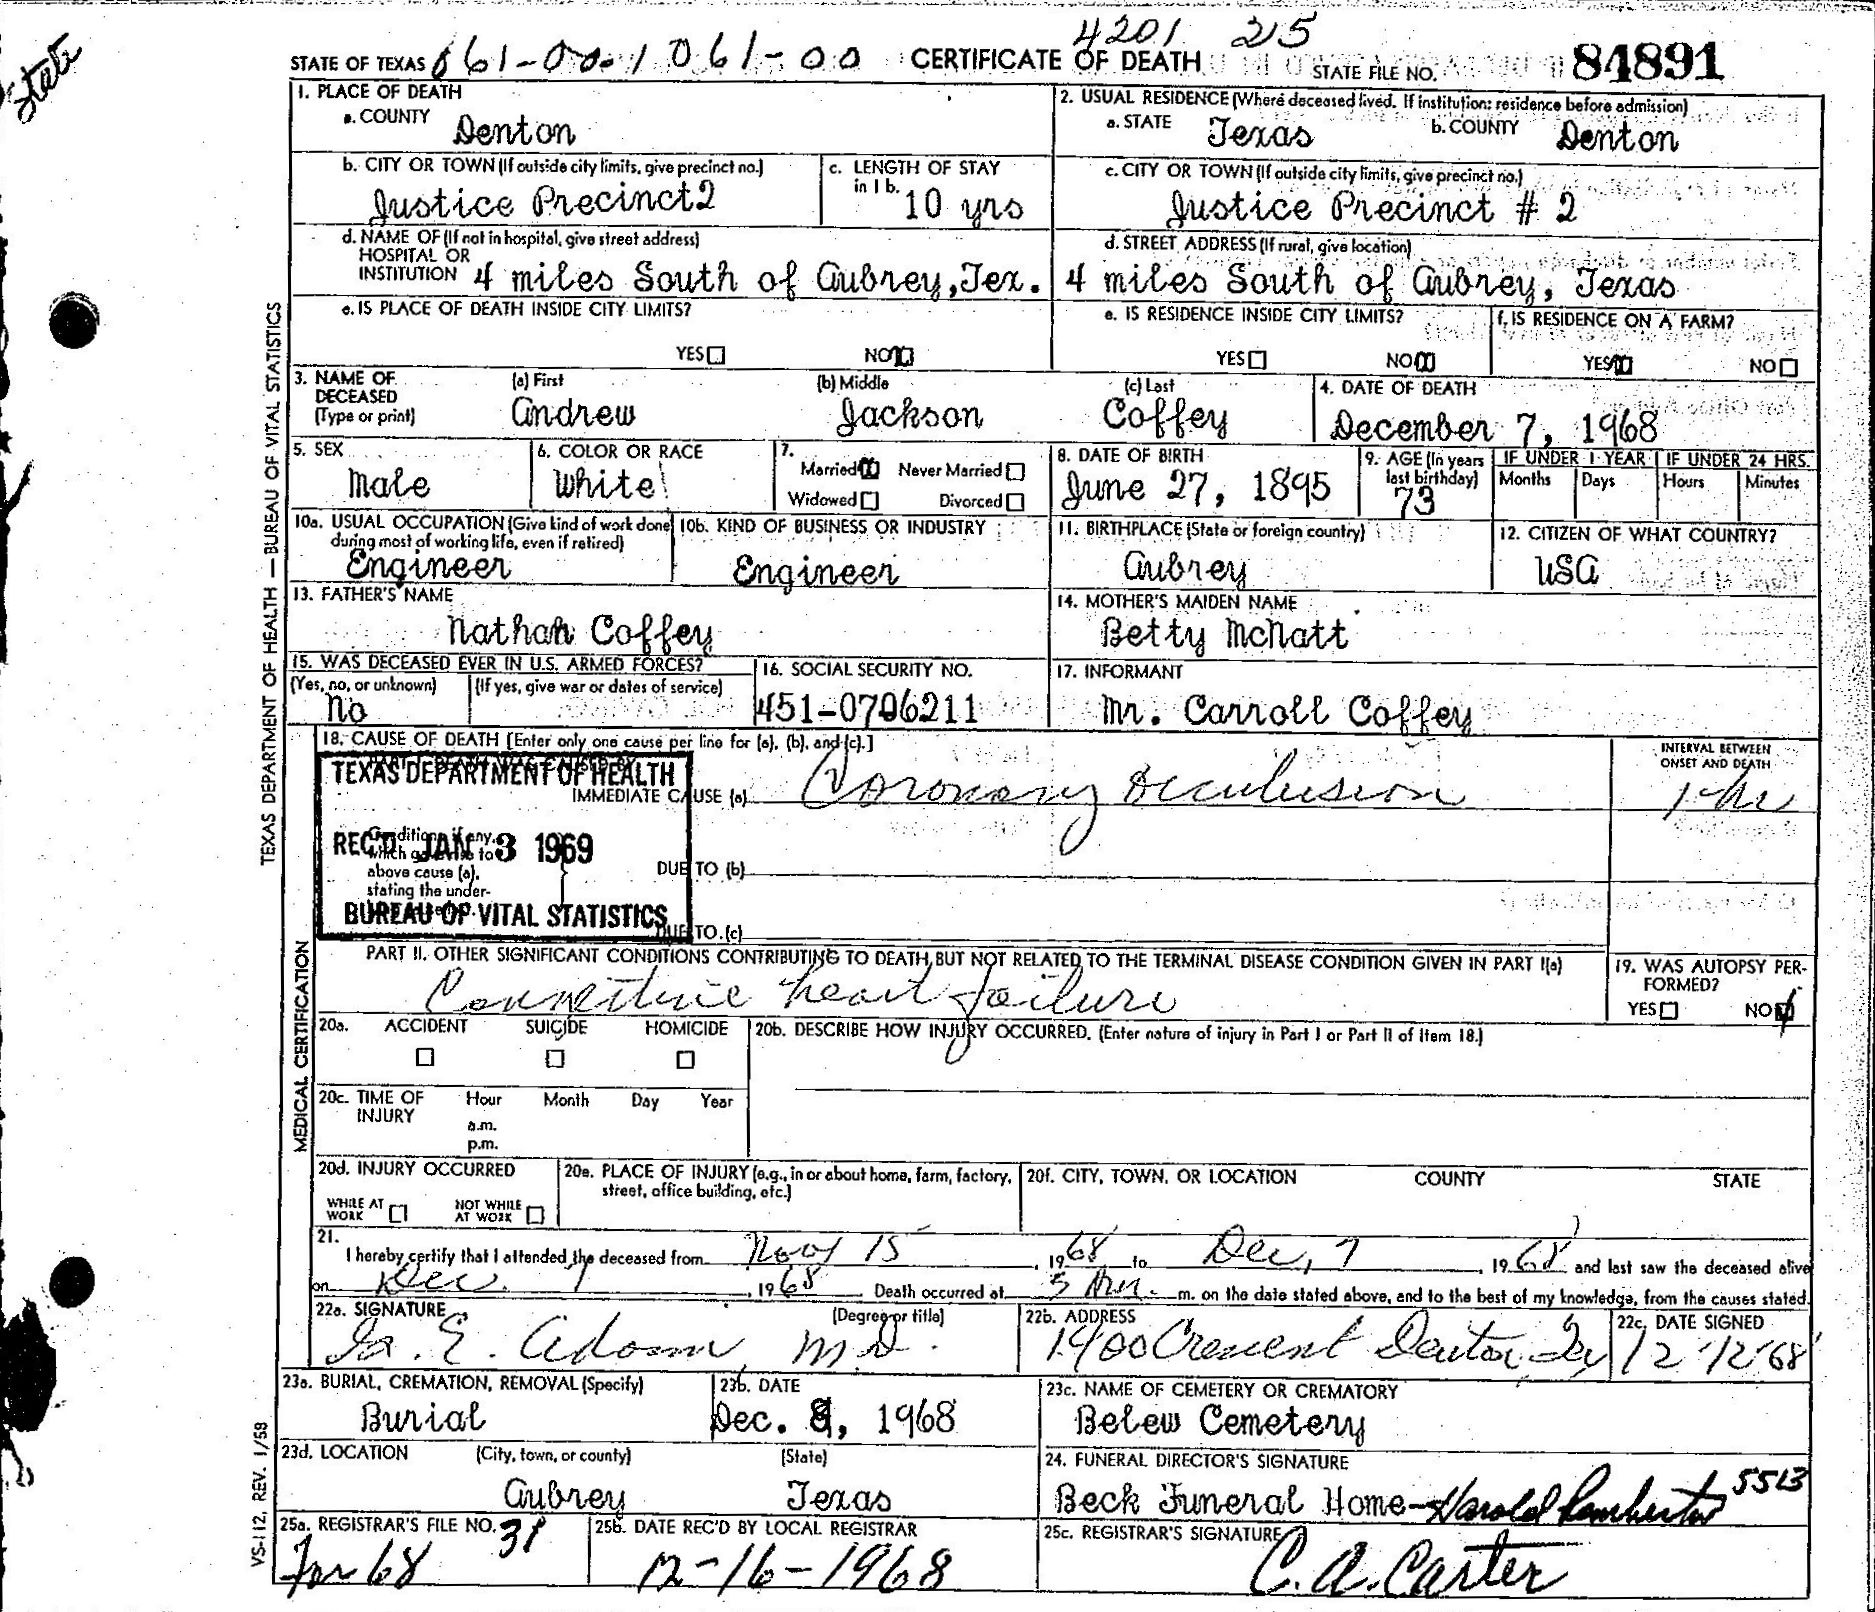 State
4201 215
STATE OF TEXAS 061-00.1 061-00 CERTIFICATE OF DEATH STATE FILE NO. 84891
1. PLACE OF DEATH
a. COUNTY Denton
2. USUAL RESIDENCE (Where deceased lived. If institution: residence before admission)
a. STATE Texas b. COUNTY Denton
b. CITY OR TOWN (If outside city limits, give precinct no.)
Justice Precinct2
c. LENGTH OF STAY
in 1 b. 10 yrs
c. CITY OR TOWN (If outside city limits, give precinct no.)
Justice Precinct # 2
d. NAME OF (If not in hospital, give street address)
HOSPITAL OR
INSTITUTION 4 miles South of Aubrey, Tex.
d. STREET ADDRESS (If rural, give location)
4 miles South of Aubrey, Texas
e. IS PLACE OF DEATH INSIDE CITY LIMITS?
YES NO
e. IS RESIDENCE INSIDE CITY LIMITS?
YES NO
f. IS RESIDENCE ON A FARM?
YES NO
3. NAME OF DECEASED (Type or print)
(a) First (b) Middle (c) Last
Andrew Jackson Coffey
4. DATE OF DEATH
December 7, 1968
5. SEX
Male
6. COLOR OR RACE
White
7.
Married Never Married
Widowed Divorced
8. DATE OF BIRTH
June 27, 1895
9. AGE (In years last birthday)
73
IF UNDER 1 YEAR IF UNDER 24 HRS.
Months Days Hours Minutes
10a. USUAL OCCUPATION (Give kind of work done
during most of working life, even if retired)
Engineer
10b. KIND OF BUSINESS OR INDUSTRY
Engineer
11. BIRTHPLACE (State or foreign country)
Aubrey
12. CITIZEN OF WHAT COUNTRY?
USA
13. FATHER'S NAME
Nathan Coffey
14. MOTHER'S MAIDEN NAME
Betty McNatt
15. WAS DECEASED EVER IN U.S. ARMED FORCES?
(Yes, no, or unknown) (If yes, give war or dates of service)
No
16. SOCIAL SECURITY NO.
451-0706211
17. INFORMANT
Mr. Carroll Coffey
18. CAUSE OF DEATH [Enter only one cause per line for (a), (b), and (c).]
TEXAS DEPARTMENT OF HEALTH
REC'D JAN 3 1969
BUREAU OF VITAL STATISTICS
Conditions, if any,
which gave rise to
above cause (a),
stating the under-
IMMEDIATE CAUSE (a) Coronary Occulusion
INTERVAL BETWEEN
ONSET AND DEATH
1 hr
DUE TO (b)
DUE TO (c)
PART II. OTHER SIGNIFICANT CONDITIONS CONTRIBUTING TO DEATH BUT NOT RELATED TO THE TERMINAL DISEASE CONDITION GIVEN IN PART I(a)
heart failure
19. WAS AUTOPSY PER-
FORMED?
YES NO
20a. ACCIDENT SUICIDE HOMICIDE
20b. DESCRIBE HOW INJURY OCCURRED. (Enter nature of injury in Part I or Part II of Item 18.)
20c. TIME OF INJURY
Hour Month Day Year
a.m.
p.m.
20d. INJURY OCCURRED
WHILE AT WORK NOT WHILE AT WORK
20e. PLACE OF INJURY (e.g., in or about home, farm, factory,
street, office building, etc.)
20f. CITY, TOWN, OR LOCATION COUNTY STATE
21.
I hereby certify that I attended the deceased from Nov 15, 1968 to Dec, 7, 1968 and last saw the deceased alive
on Dec. 7, 1968. Death occurred at 5 Am. m. on the date stated above, and to the best of my knowledge, from the causes stated.
22a. SIGNATURE (Degree or title)
E. Adams M.D.
22b. ADDRESS
1900 Crescent Denton, Tex
22c. DATE SIGNED
12-12-68
23a. BURIAL, CREMATION, REMOVAL (Specify)
Burial
23b. DATE
Dec. 9, 1968
23c. NAME OF CEMETERY OR CREMATORY
Belew Cemetery
23d. LOCATION (City, town, or county) (State)
Aubrey Texas
24. FUNERAL DIRECTOR'S SIGNATURE
Beck Funeral Home-Harold 5513
25a. REGISTRAR'S FILE NO. 31
For 68
25b. DATE REC'D BY LOCAL REGISTRAR
12-16-1968
25c. REGISTRAR'S SIGNATURE
C. A. Carter
TEXAS DEPARTMENT OF HEALTH — BUREAU OF VITAL STATISTICS
MEDICAL CERTIFICATION
VS-112, REV. 1/58